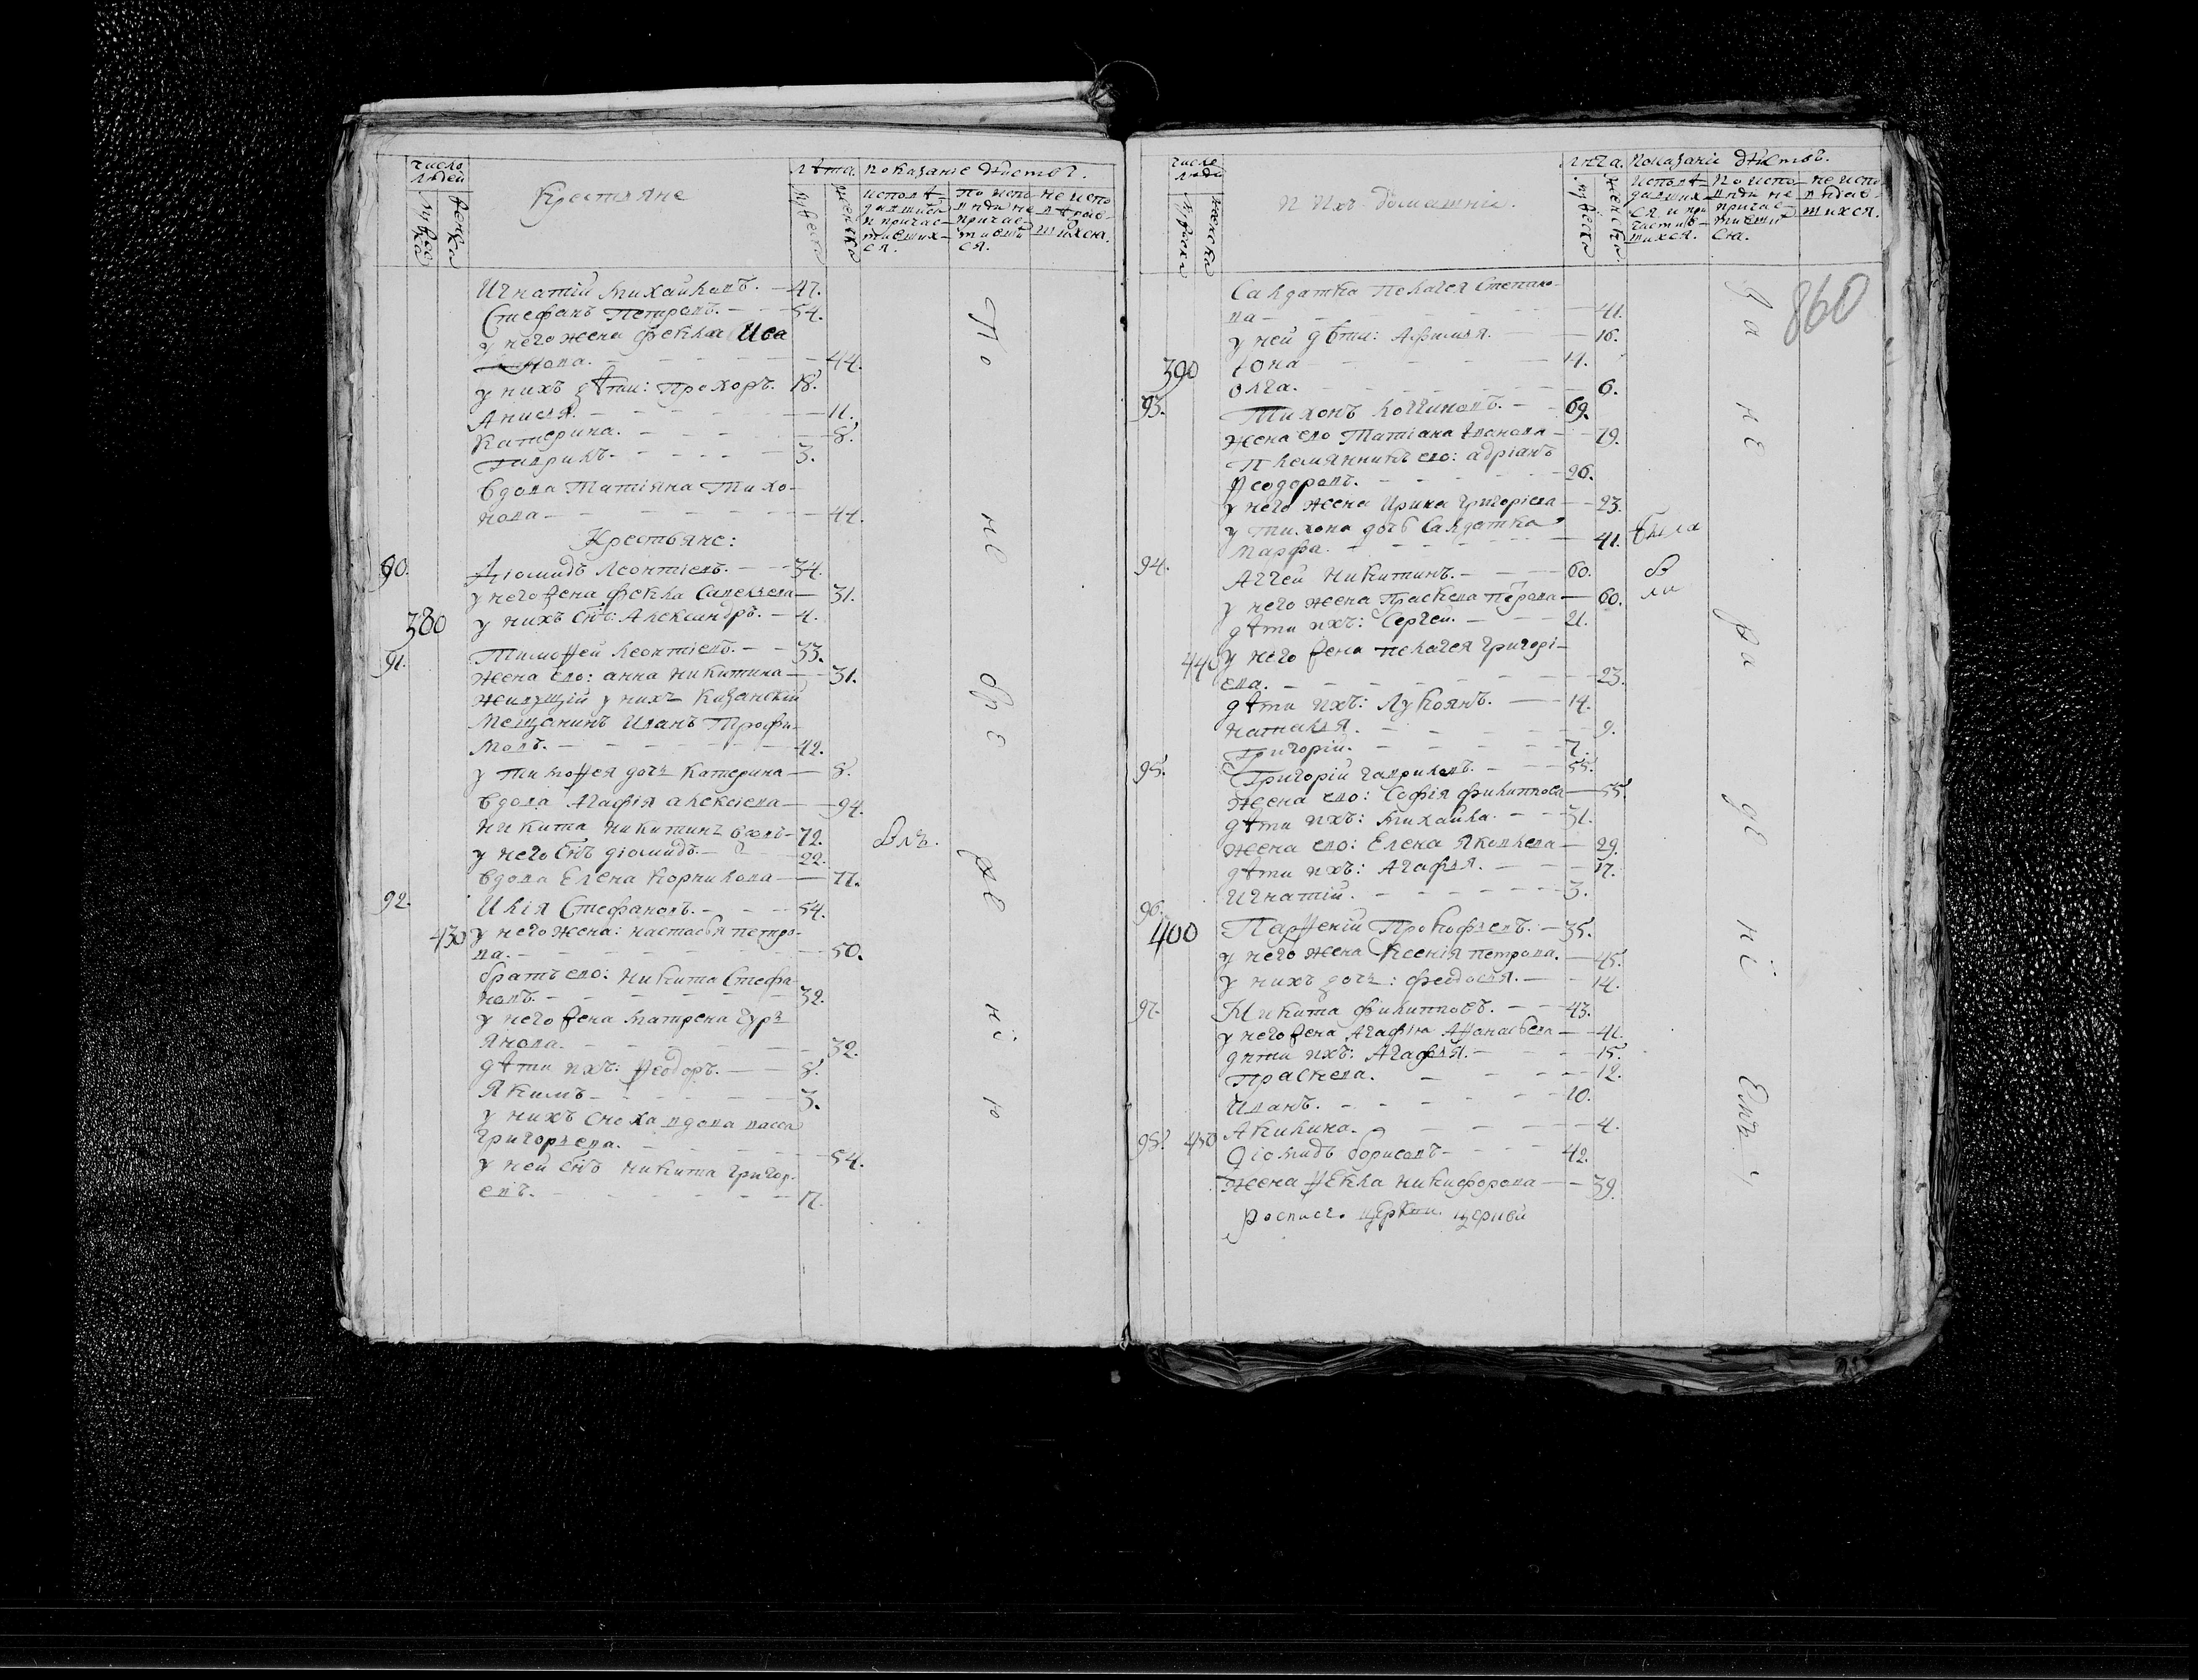 число людей
Крестьяне
лѣта. показанiе дѣйствъ.
мужеска
женска
мужеска
женска
исповѣ-
давшихся
и причас-
тивших-
ся.
по испо-
вѣди не
причас-
тивши
ся.
не испо
вѣдав-
шихся.
Игнатiй Михайловъ. — 47.
Стефанъ Петровъ. — 54.
у него жена Фекла Иса
нова. — 44.
у нихъ дѣти: Прохоръ. 18.
Анисья. — 11.
Катерина. — 8.
Гаврилъ. — 3.
Вдова Татiяна Тихо-
нова — 44.
Крестьяне:
90. Дiомидъ Леонтiевъ. — 34.
у него жена Фекла Савельева — 31.
380 у нихъ снъ: Александръ. — 4.
91. Тимоѳей Леонтiевъ. — 33.
Жена ево: анна Никитина — 31.
Живущiй у нихъ Казанскiй
Мещанинъ Иванъ Трофи-
мовъ. — 42.
у Тимоѳея дочь Катерина — 8.
Вдова Агафiя алексiева — 94.
Никита Никитинъ — 72.
у него снъ дiомидъ. — 22.
Вдова Елена Корнилова — 77.
92. Илiя Стефановъ. — 54.
430 у него жена: настасья петро-
ва. — 50.
братъ ево: Никита Стефа
новъ. — 32.
у него жена Матрена Гурь
янова. — 32.
дѣти ихъ: Ѳеодоръ. — 8.
Якимъ — 3.
у нихъ сноха вдова васса
Григорьева. — 54.
у ней снъ Никита Григор-
евъ. — 17.
По не бре же нiю
числе люди
и Ихъ домашнiи.
лѣта. Показанiи дѣйствъ.
мужеска
женска
мужеска
женска
исповѣ-
давших-
ся и при
частив-
шихся.
По испо-
вѣди не
причас-
тивши
ся.
не испо
вѣдав-
шихся.
860
Салдатка Пелагея Степано-
ва — 41.
у ней дѣти: Афимья. — 16.
390 Iона — 11.
Олга. — 6.
93. Тихонъ Логиновъ. — 69.
жена ево Татiана Iванова — 79.
Племянникъ ево: адрiанъ
Ѳеодоровъ. — 26.
у него жена Ирина Григорiева — 23.
у Тихона дочь Салдатка
Марфа. — 41.
94. Аггей Никитинъ. — 60.
у него жена Праскева Петрова — 60.
дѣти ихъ: Сергей. — 21.
440 у него жена пелагея Григорi-
ева. — 23.
дѣти ихъ: Лукоянъ. — 14.
Наталья. — 9.
Григорiй. — 7.
95. Григорiй гавриловъ. — 55.
Жена ево: Софiя филиппова — 55.
дѣти ихъ: Михайла. — 31.
Жена ево: Елена Яковлева — 29.
дѣти ихъ: Агафья. — 17.
Игнатiй. — 3.
96. 400 Парѳенiй Прокофьевъ. — 35.
у него жена Ксенiя петрова. — 45.
у нихъ дочь: феодосья. — 14.
97. Никита филипповъ. — 43.
у него жена Агафiя Аѳанасьева — 41.
дѣти ихъ: Агафья. — 15.
Праскева. — 12.
Иванъ. — 10.
450 Акилина. — 4.
98. Дiомидъ борисовъ — 42.
Жена Ѳекла никифорова — 39.